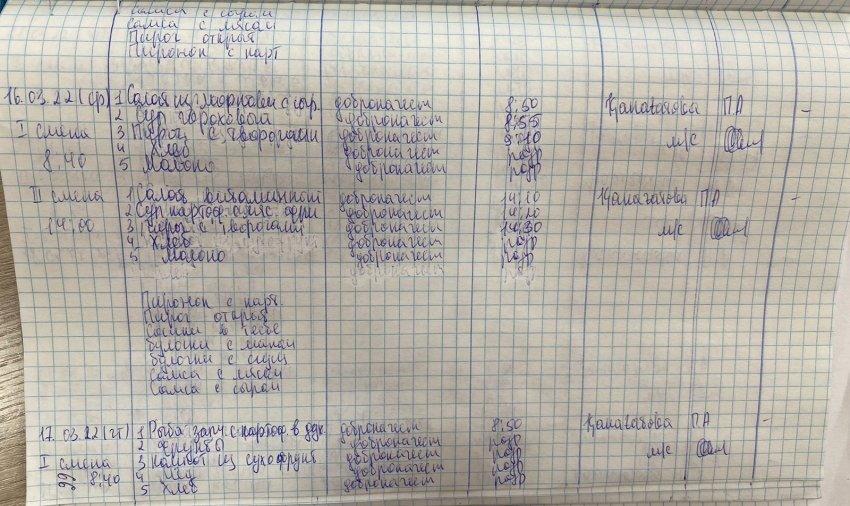 Самса с сыром
Самса с мясом
Пирог открыт
Пирожок с карт
16.03.22 (ср) 1 Салат из моркови с сыр. доброкачест 8:50 Канатахова П.А –
2 Суп гороховый доброкачест 8:55
I смена 3 Пирог с творогами доброкачест 9:10 м/с
4 Хлеб доброкачест разр
8:40 5 Молоко доброкачест разр
II смена 1 Салат витаминный доброкачест 14:10 П.А –
2 Суп картоф. с мяс. фри доброкачест 14:20
14:00 3 Пирог с творогами доброкачест 14:30 м/с
4 Хлеб доброкачест разр
5 Молоко доброкачест разр
Пирожок с карт.
Пирог открыт
Сосиски в тесте
булочки с маком
булочки с сгущ
Самса с мясом
Самса с сыром
17.03.22 (чт) 1 Рыба запч. с картоф. в дух. доброкачест 8:50 Канатахова П.А –
2 Фрукты доброкачест разр
I смена 3 Компот из сухофрукт доброкачест разр м/с
8:40 4 доброкачест разр
5 Хлеб доброкачест разр